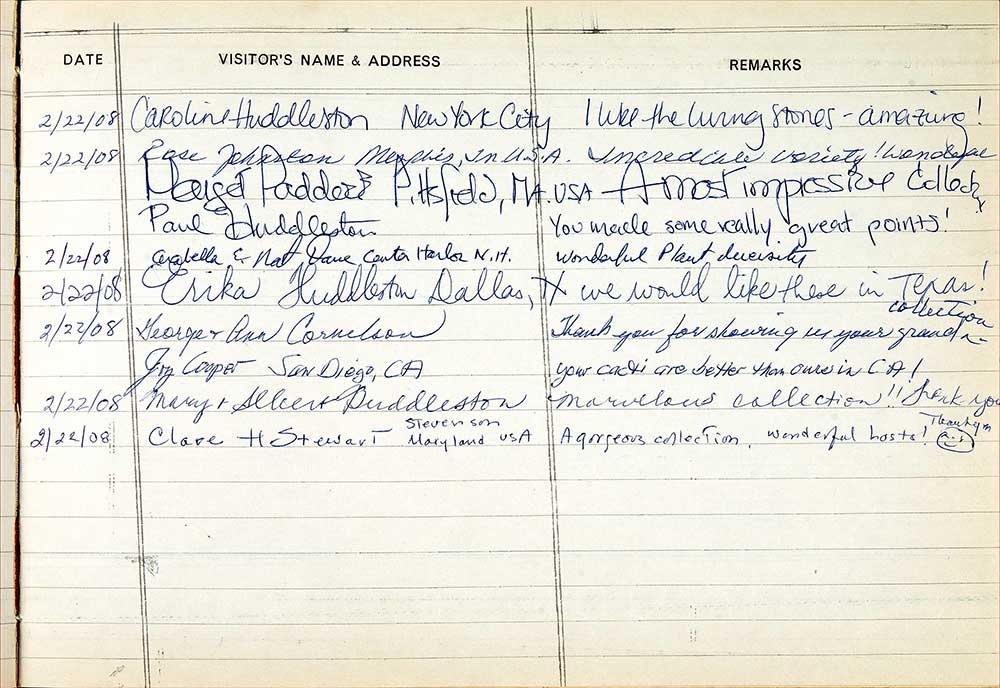 DATE VISITOR'S NAME & ADDRESS REMARKS
2/22/08 Caroline Huddleston New York City I like the living stones - amazing!
2/22/08 Rose Johnston Memphis, Tn U.S.A. Incredible variety! Wonderful
Paddock Pittsfield, MA. USA A most impressive Collectn!
Paul Huddleston You made some really great points!
2/22/08 Arabella & Nat Center Harbor N.H. Wonderful Plant diversity
2/22/08 Erika Huddleston Dallas, TX we would like these in Texas!
collection
2/22/08 George + Ann Cornelson Thank you for showing us your grand
Joy Cooper San Diego, CA your cacti are better than ours in CA!
2/22/08 Mary + Albert Huddleston Marvelous collection!! Thank you
2/22/08 Clare H Stewart Stevenson Maryland USA A gorgeous collection, wonderful hosts!